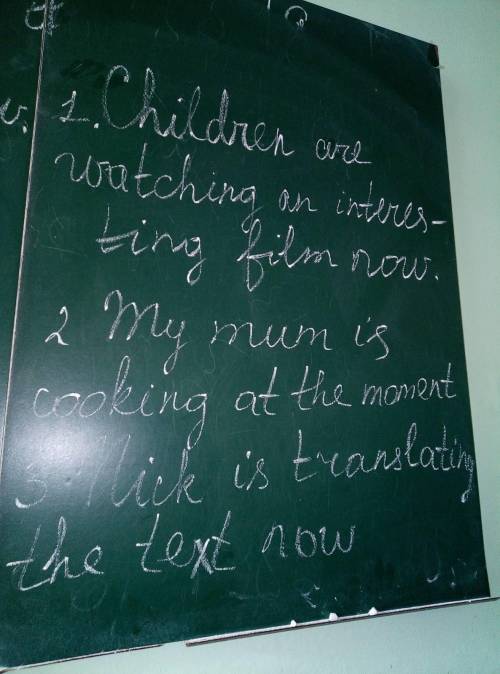 1. Children are
watching an interes-
ting film now.
2 My mum is
cooking at the moment
3 Nick is translating
the text now